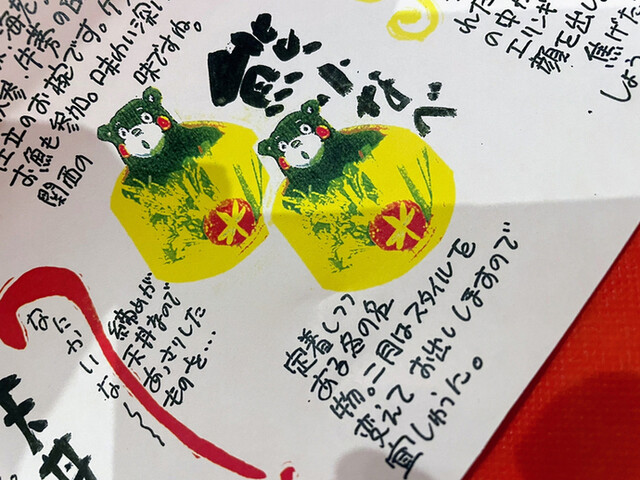 んだ
の中
エリンギ
顔を出し
焦げた
しょう
参・牛蒡の
仕立のお椀です。
お魚も参加。味わい深い
関西の味ですね。
小なべ
締めが
天丼なので
あっさりした
ものを…
なにかいな〜
天丼
定着しつつ
ある冬の名
物。二月はスタイルを
変えてお出ししますので
宜しゅうに。